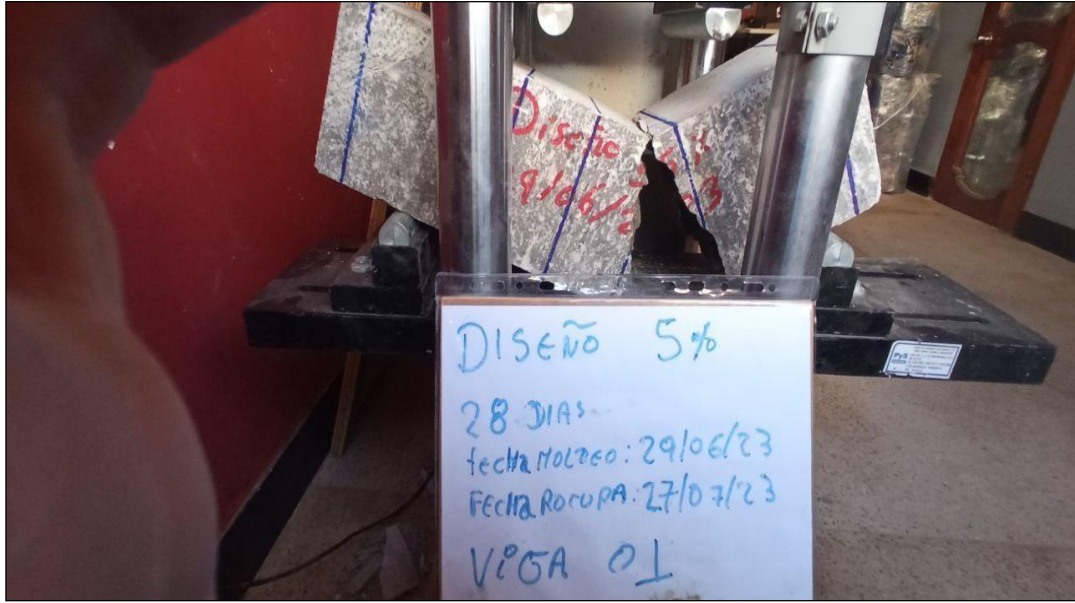 Diseño
DISEÑO 5%
28 DIAS
fecHa MOLDEO: 29/06/23
FECHa ROTURA: 27/07/23
VIGA 01
PyS